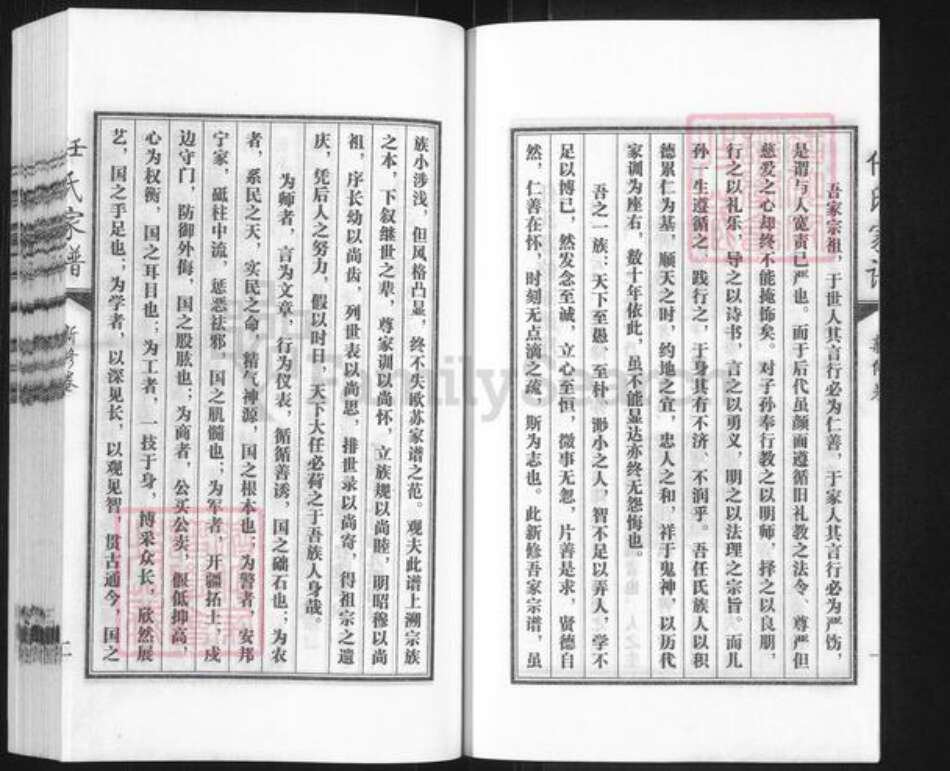 吾家宗祖，于世人其言行必为仁善，于家人其言行必为严饬，
是谓与人宽责己严也。而于后代虽颜面遵循旧礼教之法令、尊严但
慈爱之心却终不能掩饰矣。对子孙奉行教之以明师，择之以良朋，
行之以礼乐，导之以诗书，言之以勇义，明之以法理之宗旨。而儿
孙一生遵循之、践行之，于身其有不济、不润乎。吾任氏族人以积
德累仁为基，顺天之时，约地之宜，忠人之和，祥于鬼神，以历代
家训为座右，数十年依此，虽不能显达亦终无怨悔也。
吾之一族：天下至愚、至朴、渺小之人，智不足以弄人，学不
足以博己，然发念至诚，立心至恒，微事无怨，片善是求，贤德自
然，仁善在怀，时刻无点滴之疏，斯为志也。此新修吾家宗谱，虽
族小涉浅，但风格凸显，终不失欧苏家谱之范。观夫此谱上溯宗族
之本，下叙继世之辈，尊家训以尚怀，立族规以尚睦，明昭穆以尚
祖，序长幼以尚齿，列世表以尚思，排世录以尚寄，得祖宗之遗
庆，凭后人之努力，假以时日，天下大任必荷之于吾族人身哉。
为师者，言为文章，行为仪表，循循善诱，国之础石也；为农
者，系民之天，实民之命，精气神源，国之根本也；为警者，安邦
宁家，砥柱中流，惩恶祛邪，国之肌髓也；为军者，开疆拓土，戍
边守门，防御外侮，国之股肱也；为商者，公买公卖，假低抑高，
心为权衡，国之耳目也；为工者，一技于身，博采众长，欣然展
艺，国之手足也；为学者，以深见长，以观见智，贯古通今，国之
任氏家谱
新修卷
一
FamilySearch